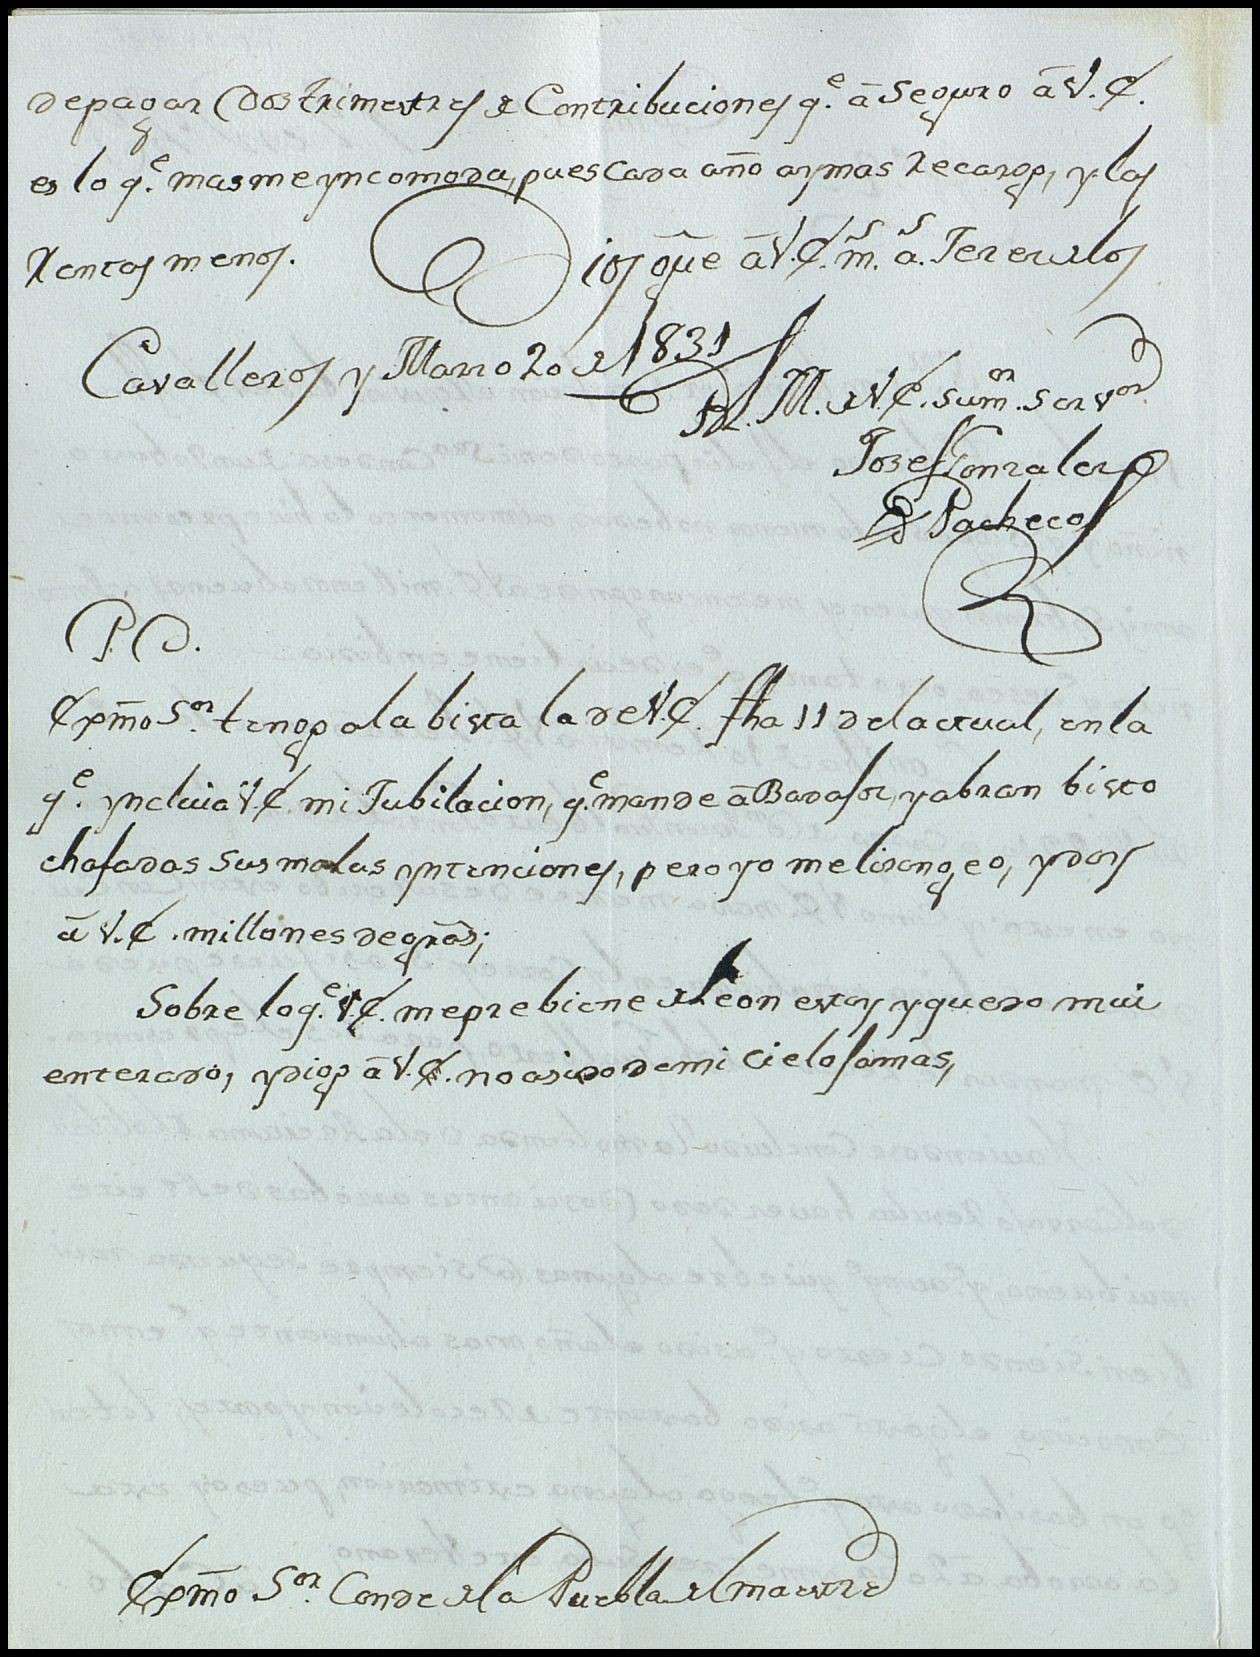 de pagar Dos trimestres de Contribuciones q.e ā Seguro ā V.E.
es lo q.e mas me yncomoda, pues Cada año ay mas Recargo, y las
Rentas menos. Dios gūe ā V.E. m.s a.s Jerez de los
Cavalleros y Marzo 20 de 1831
B.L.M. de V.E. su m.or servor.
Josef Gonzalez
Pacheco
P.D.
Exm̄o S.or tengo ala bista la de V.E. fha 11 del actual, en la
q.e ynclúia V.E. mi Jubilacion, q.e mande ā Badajoz, y abran bisto
chafadas sus malas yntenciones, pero yo me lisongeo, y doy
ā V.E. millones de grās;
Sobre lo q.e V.E. me prebiene de Leon estoy y quedo mui
enterado, y digo ā V.E. no asido de mi Cielo jamas,
Exm̄o S.or Conde de la Puebla del maestre